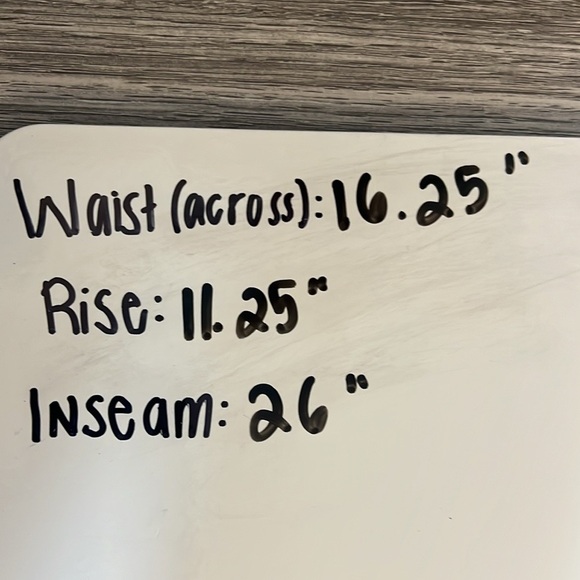 Waist (across): 16.25"
Rise: 11.25"
Inseam: 26"